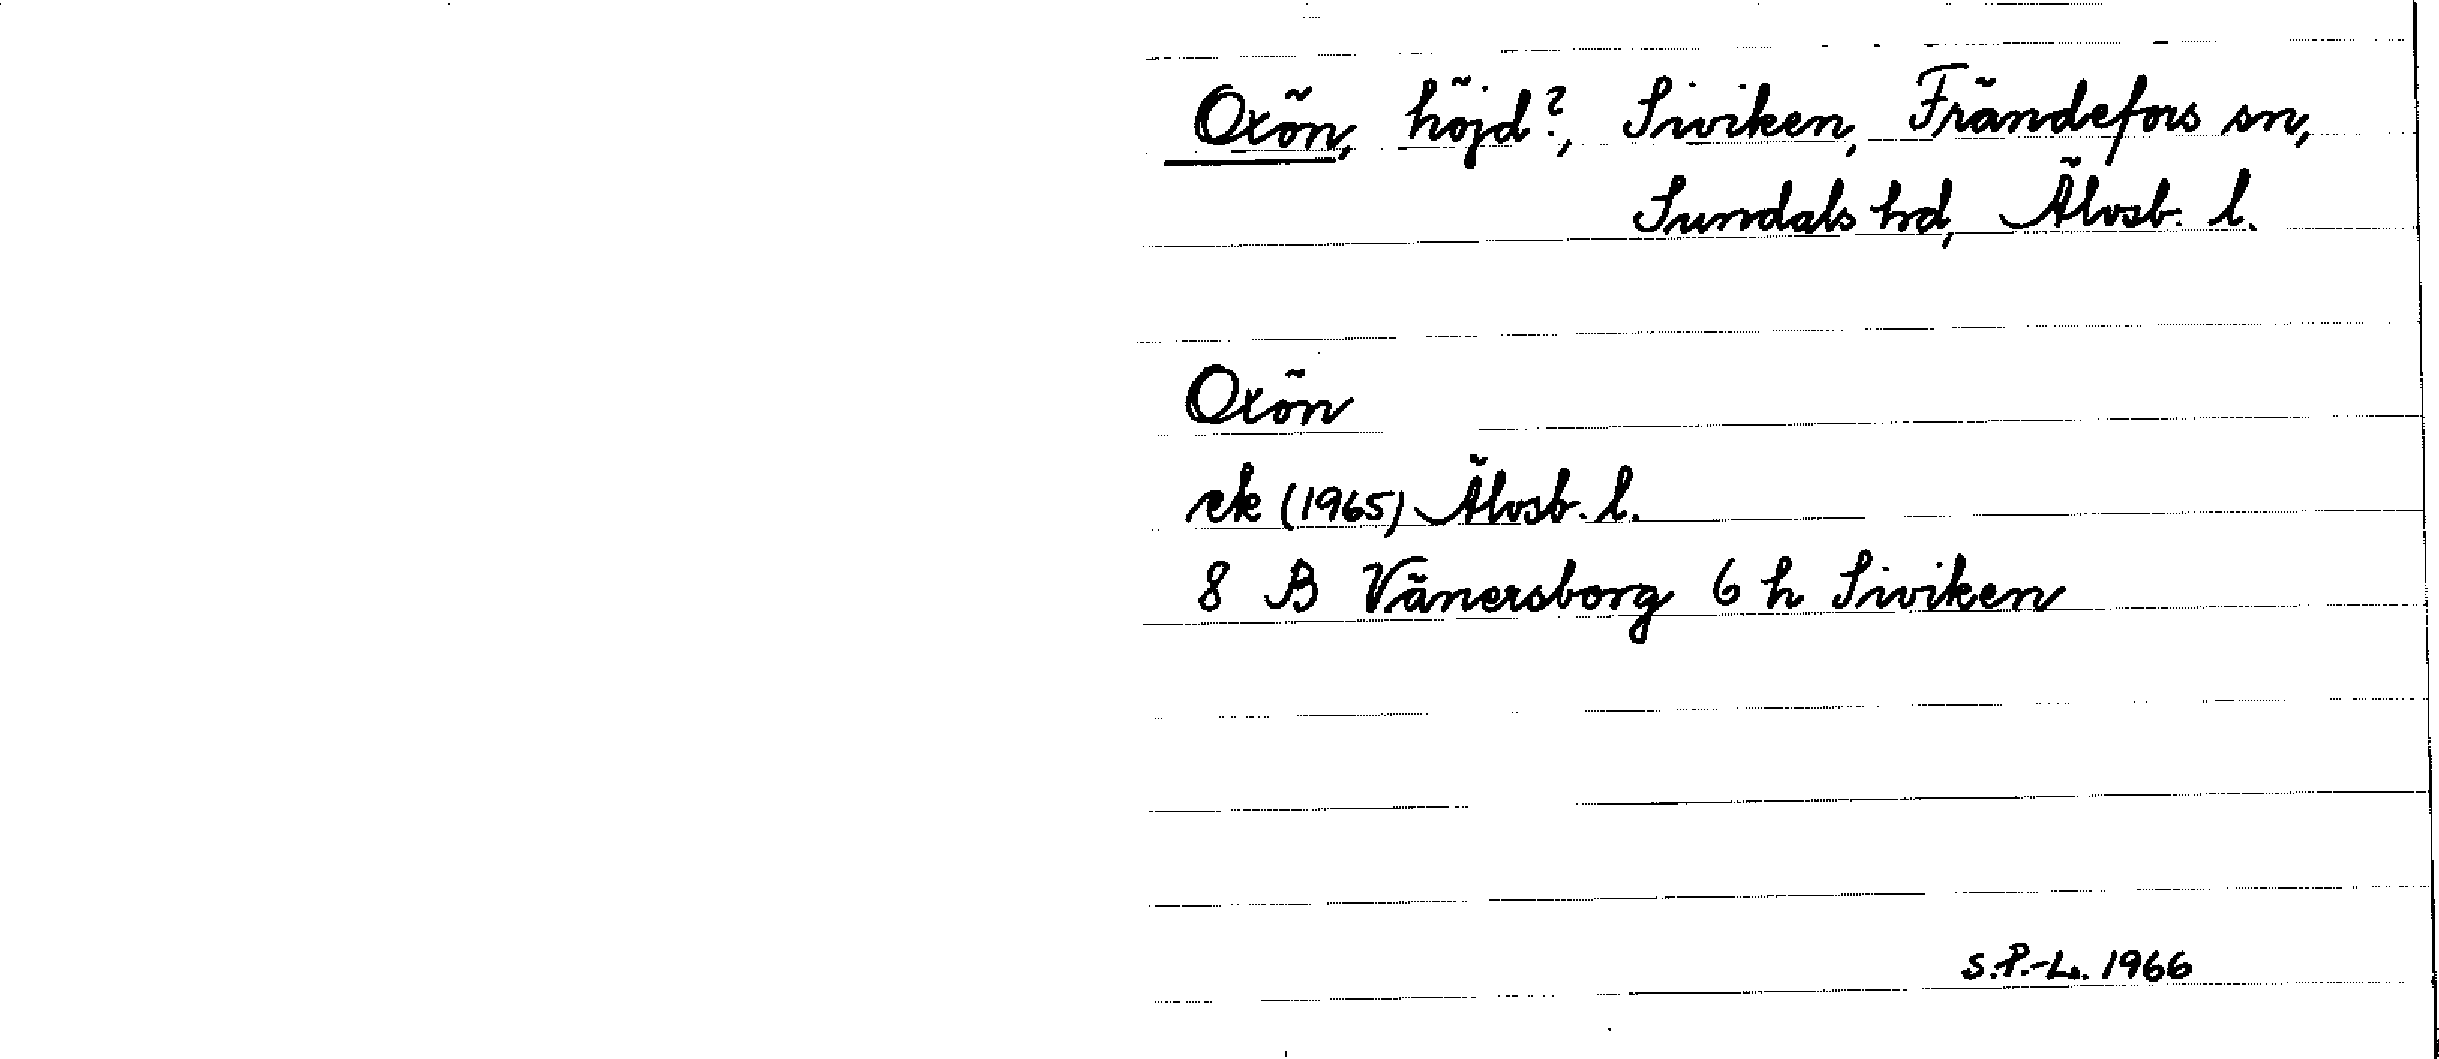 Oxön, höjd?, Siviken, Frändefors sn,
Sundals hd, Älvsb. l.
Oxön
ek (1965) Älvsb. l.
8 B Vänersborg 6 h Siviken
S.P.-L. 1966